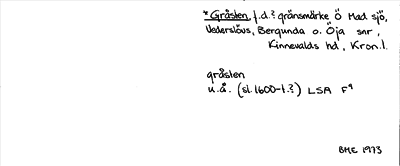 * Gråsten, f.d.? gränsmärke Ö Mad sjö,
Vederslövs, Bergunda o. Öja snr,
Kinnevalds hd, Kron.l.
gråsten
u.å. (sl. 1600-t.?) LSA F⁹
BME 1973